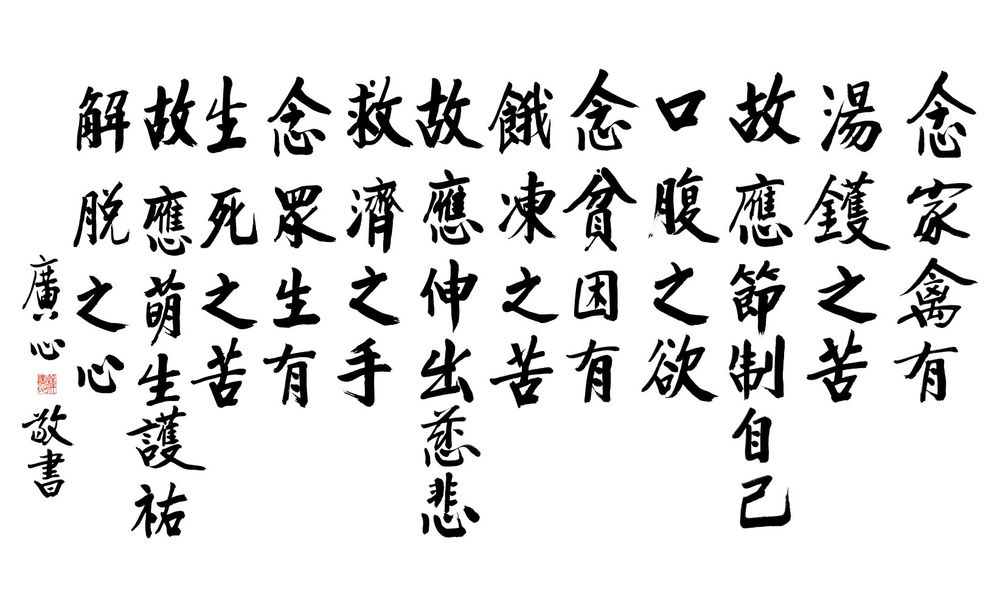 念家禽有
湯鑊之苦
故應節制自己
口腹之欲
念貧困有
餓凍之苦
故應伸出慈悲
救濟之手
念眾生有
生死之苦
故應萌生護祐
解脫之心
廣心敬書